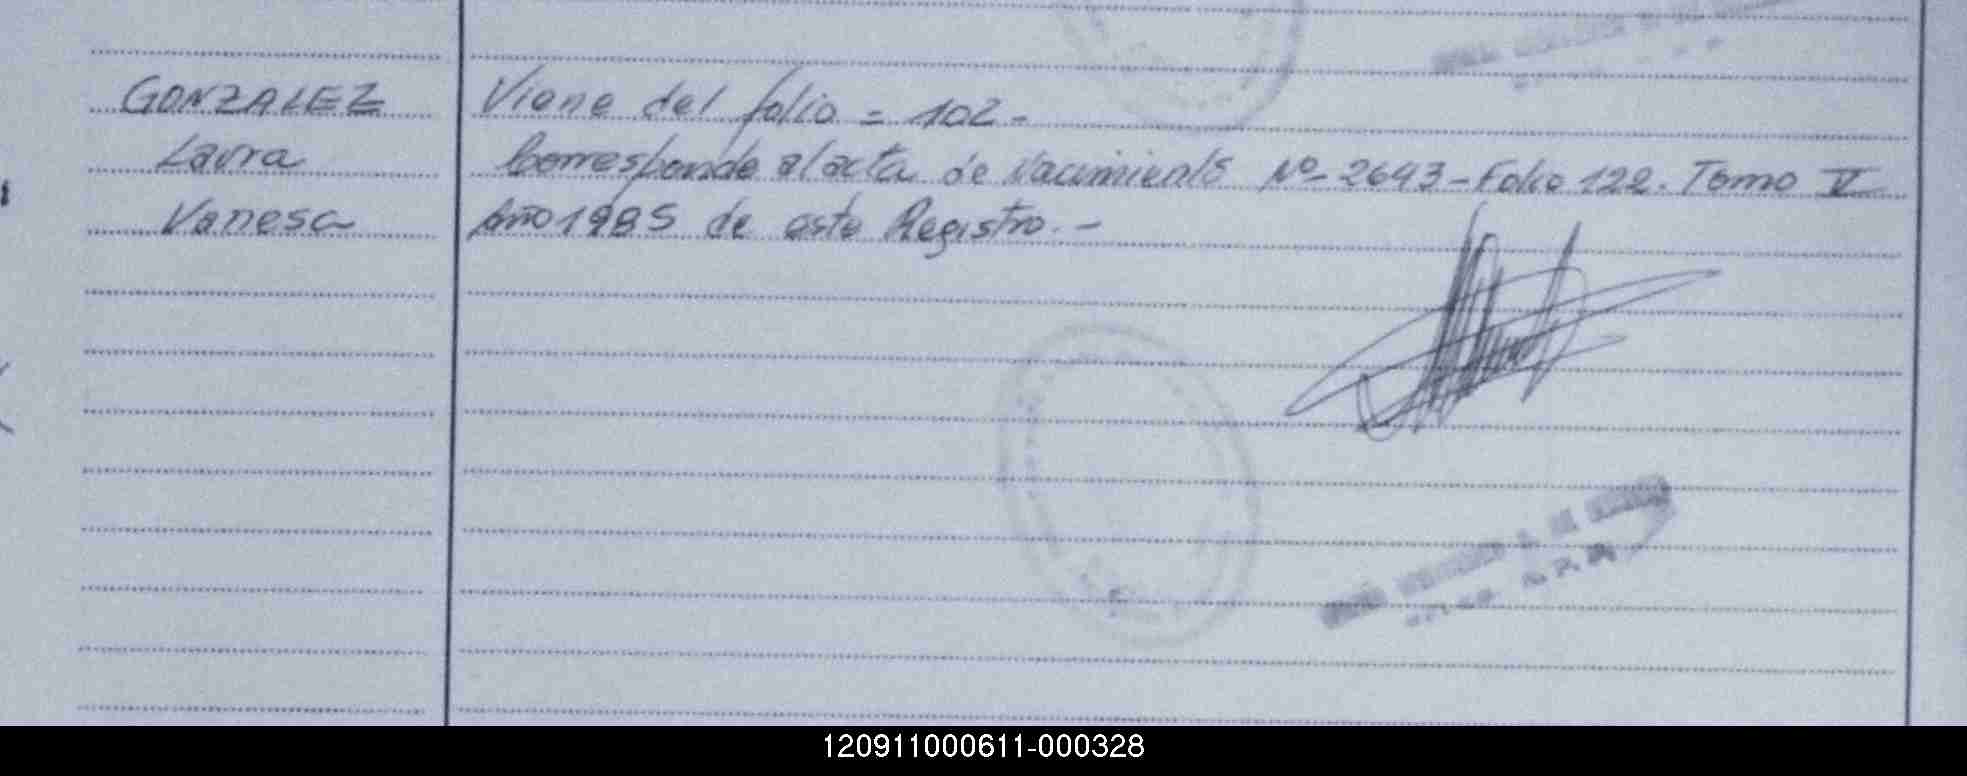 GONZALEZ
Laura
Vanesa
Viene del folio = 102 -
Corresponde al acta de Nacimiento Nº- 2643 - Folio 122. Tomo V
Año 1985 de este Registro. -
120911000611-000328